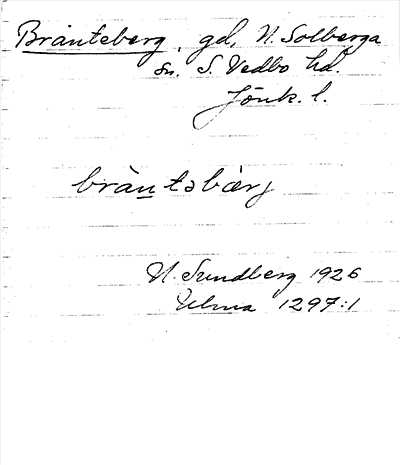 Bränteberg, gd, N. Solberga
sn. S. Vedbo hd.
Jönk. l.
brä̀n̲təbær̀j
N. Sundberg 1926
Ulma 1297:1